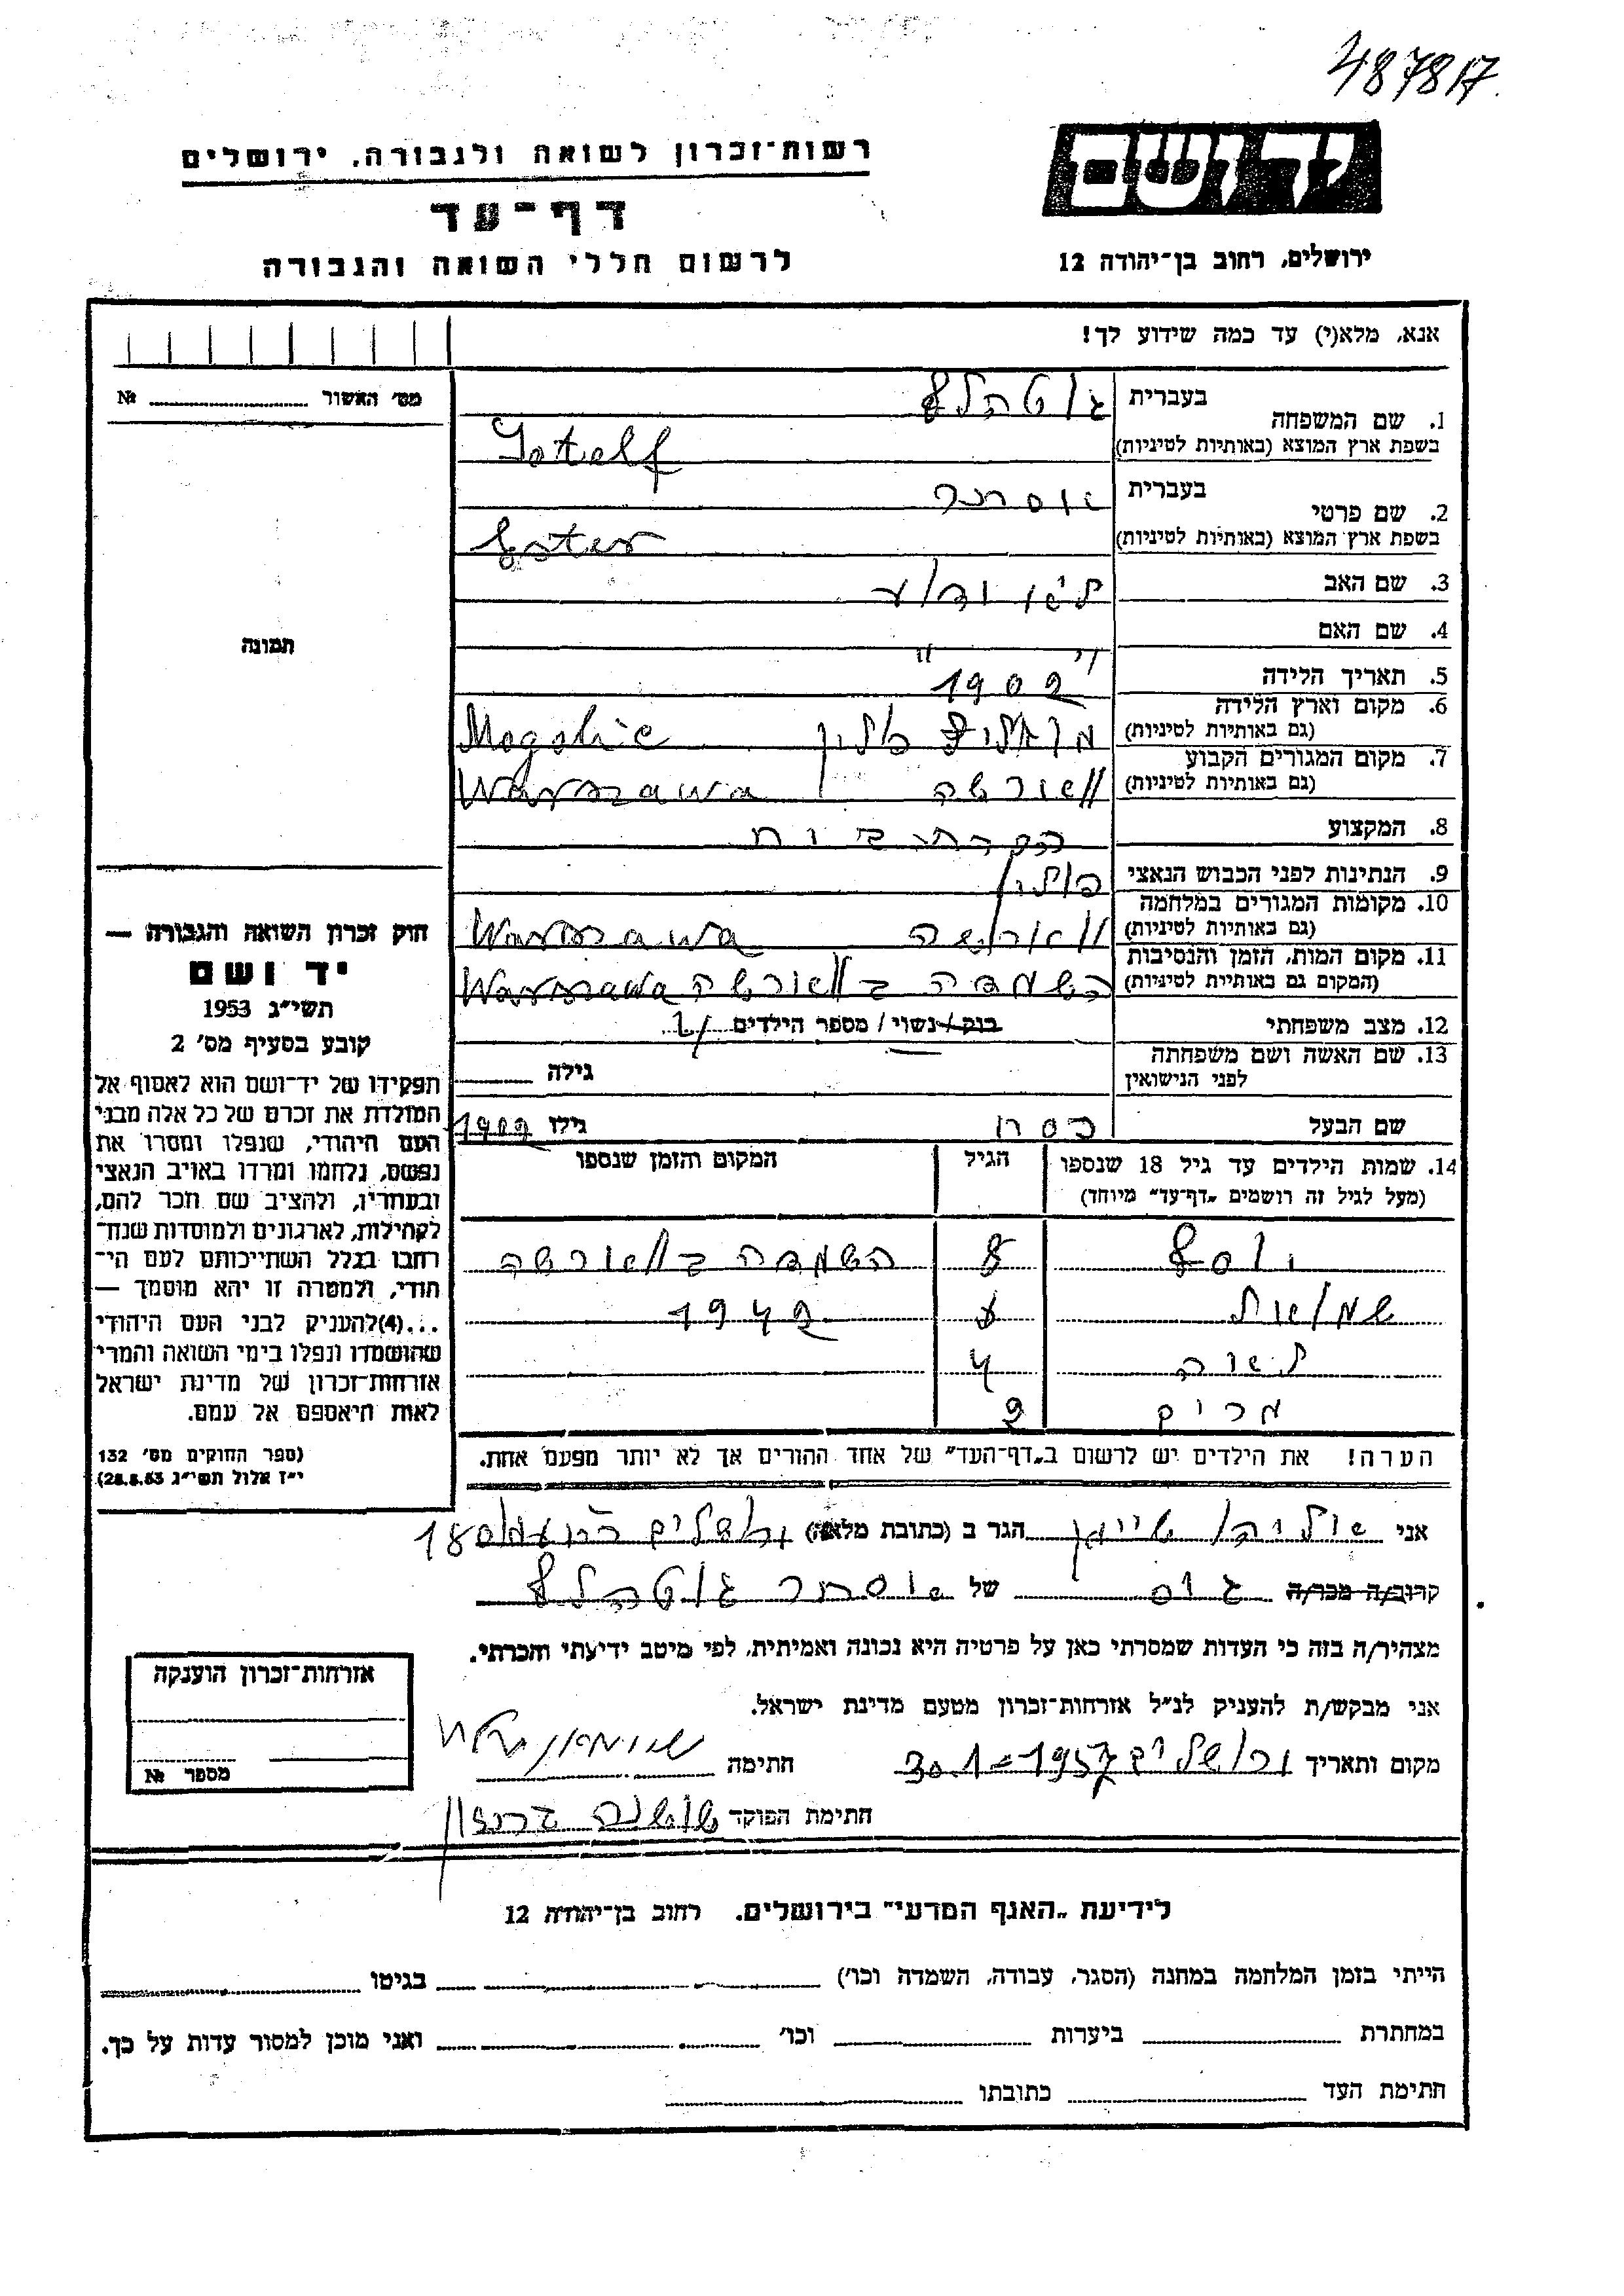 487817
יד ושם
רשות־זכרון לשואה ולגבורה, ירושלים
דף־עד
לרשום חללי השואה והגבורה
ירושלים, רחוב בן־יהודה 12
אנא, מלא(י) עד כמה שידוע לך!
מס׳ האשור № 
1. שם המשפחה
בעברית גוטהלף
בשפת ארץ המוצא (באותיות לטיניות) Gotelf
2. שם פרטי
בעברית אסתר
בשפת ארץ המוצא (באותיות לטיניות) Ester
3. שם האב
4. שם האם
תמונה
5. תאריך הלידה 1902
6. מקום וארץ הלידה
(גם באותיות לטיניות) פולין
7. מקום המגורים הקבוע
(גם באותיות לטיניות) ווארשה Warszawa
8. המקצוע
9. הנתינות לפני הכבוש הנאצי פולין
10. מקומות המגורים במלחמה
(גם באותיות לטיניות) ווארשה Warszawa
11. מקום המות, הזמן והנסיבות
(המקום גם באותיות לטיניות) השמדה בווארשה Warszawa
12. מצב משפחתי רוק/נשוי/ מספר הילדים
13. שם האשה ושם משפחתה
לפני הנישואין
גילה
שם הבעל פסח גילו 1902
14. שמות הילדים עד גיל 18 שנספו
(מעל לגיל זה רושמים „דף־עד״ מיוחד)
הגיל
המקום והזמן שנספו
יוסף 8 השמדה בווארשה
שמואל 6 1942
לאה 4
מרים 2
הערה! את הילדים יש לרשום ב„דף־העד״ של אחד ההורים אך לא יותר מפעם אחת.
חוק זכרון השואה והגבורה —
יד ושם
תשי״ג 1953
קובע בסעיף מס׳ 2
תפקידו של יד־ושם הוא לאסוף אל
המולדת את זכרם של כל אלה מבני
העם היהודי, שנפלו ומסרו את
נפשם, נלחמו ומרדו באויב הנאצי
ובעוזריו, ולהציב שם וזכר להם,
לקהילות, לארגונים ולמוסדות שנח־
רבו בגלל השתייכותם לעם הי־
הודי, ולמטרה זו יהא מוסמך —
...(4)להעניק לבני העם היהודי
שהושמדו ונפלו בימי השואה והמרי
אזרחות־זכרון של מדינת ישראל
לאות היאספם אל עמם.
(ספר החוקים מס׳ 132
י״ז אלול תשי״ג 28.8.53)
אני הגר ב (כתובת מלאה) ירושלים 180
קרוב/ה מכר/ה גיס של אסתר גוטהלף
מצהיר/ה בזה כי העדות שמסרתי כאן על פרטיה היא נכונה ואמיתית, לפי מיטב ידיעתי והכרתי.
אני מבקש/ת להעניק לנ״ל אזרחות־זכרון מטעם מדינת ישראל.
מקום ותאריך ירושלים 30.1-1957 חתימה
חתימת הפוקד שושנה
אזרחות־זכרון הוענקה
מספר №
לידיעת „האגף המדעי״ בירושלים. רחוב בן־יהודה 12
הייתי בזמן המלחמה במחנה (הסגר, עבודה, השמדה וכו׳) בגיטו
במחתרת ביערות וכו׳ ואני מוכן למסור עדות על כך.
חתימת העד כתובתו